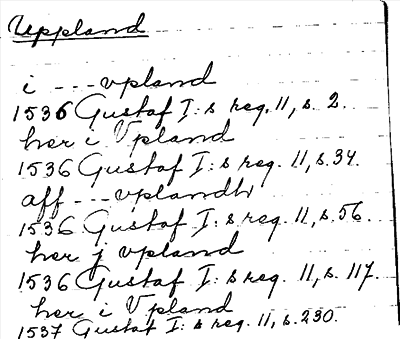 Uppland
i --- vpland
1536 Gustaf I:s reg. 11, s. 2.
her i Vpland
1536 Gustaf I:s reg. 11, s. 34.
aff --- vplandh
1536 Gustaf I:s reg. 11, s. 56.
her j vpland
1536 Gustaf I:s reg. 11, s. 117.
her i Vpland
1537 Gustaf I:s reg. 11, s. 230.